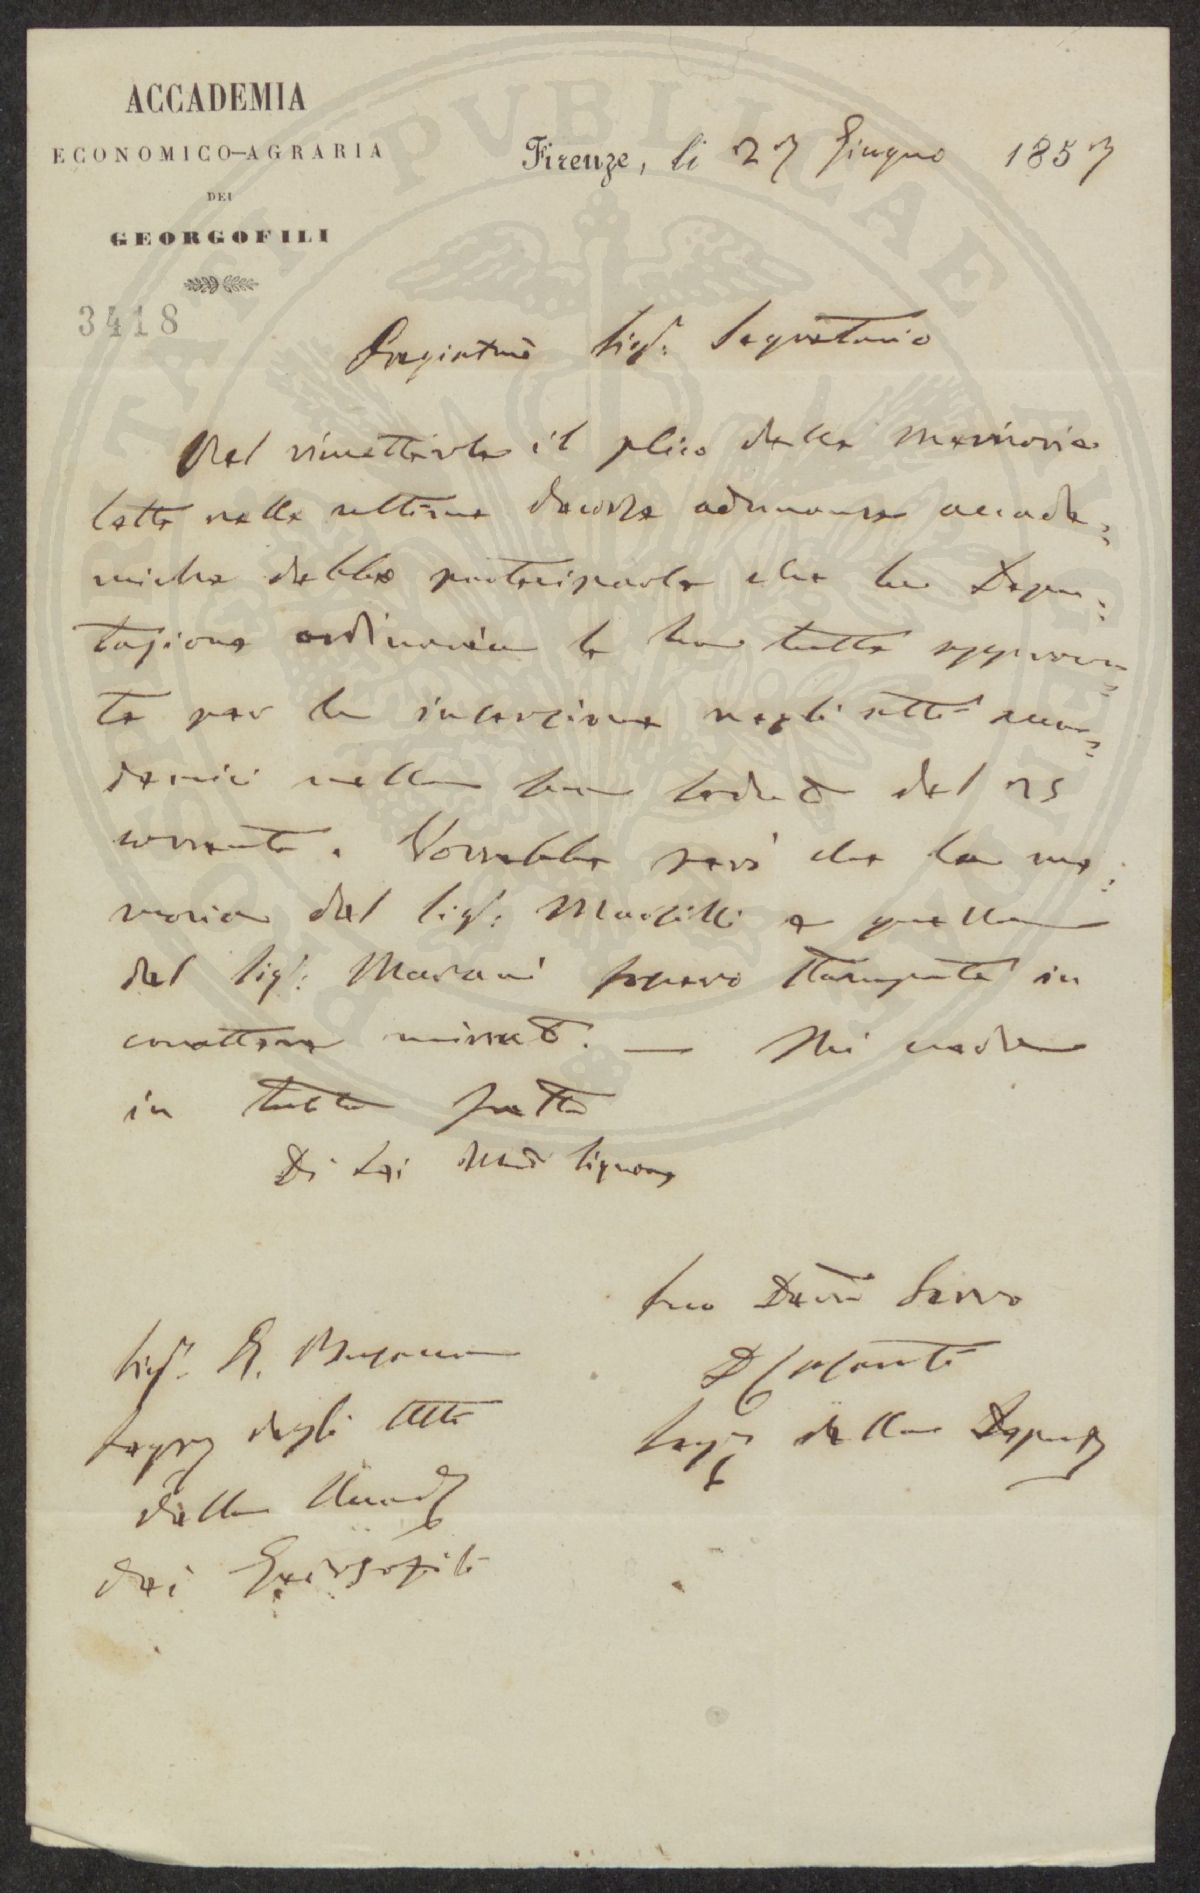 ACCADEMIA
ECONOMICO-AGRARIA
DEI
GEORGOFILI
Firenze, li 27 Giugno 1857
3418
Pregiatmo Sigr. Segretario
Nel rimetterle il plico delle memorie
lette nella ultima decorsa adunanza accade=
mica debbo parteciparle che la Depu=
tazione ordinaria le ha tutte approva=
te per la inserzione negli atti acca=
demici nella sua seduta del 25
corrente. Vorrebbe però che la me=
moria del Sigr. e quella
del Sigr. fossero stampate in
carattere minuto. — Mi creda
in tutta fretta
Di Lei Signore
Suo Devmo Servo
Segr. della Deput
Sigr.
Segrio degli Atti
della Accad
dei Georgofili
PUBLICAE